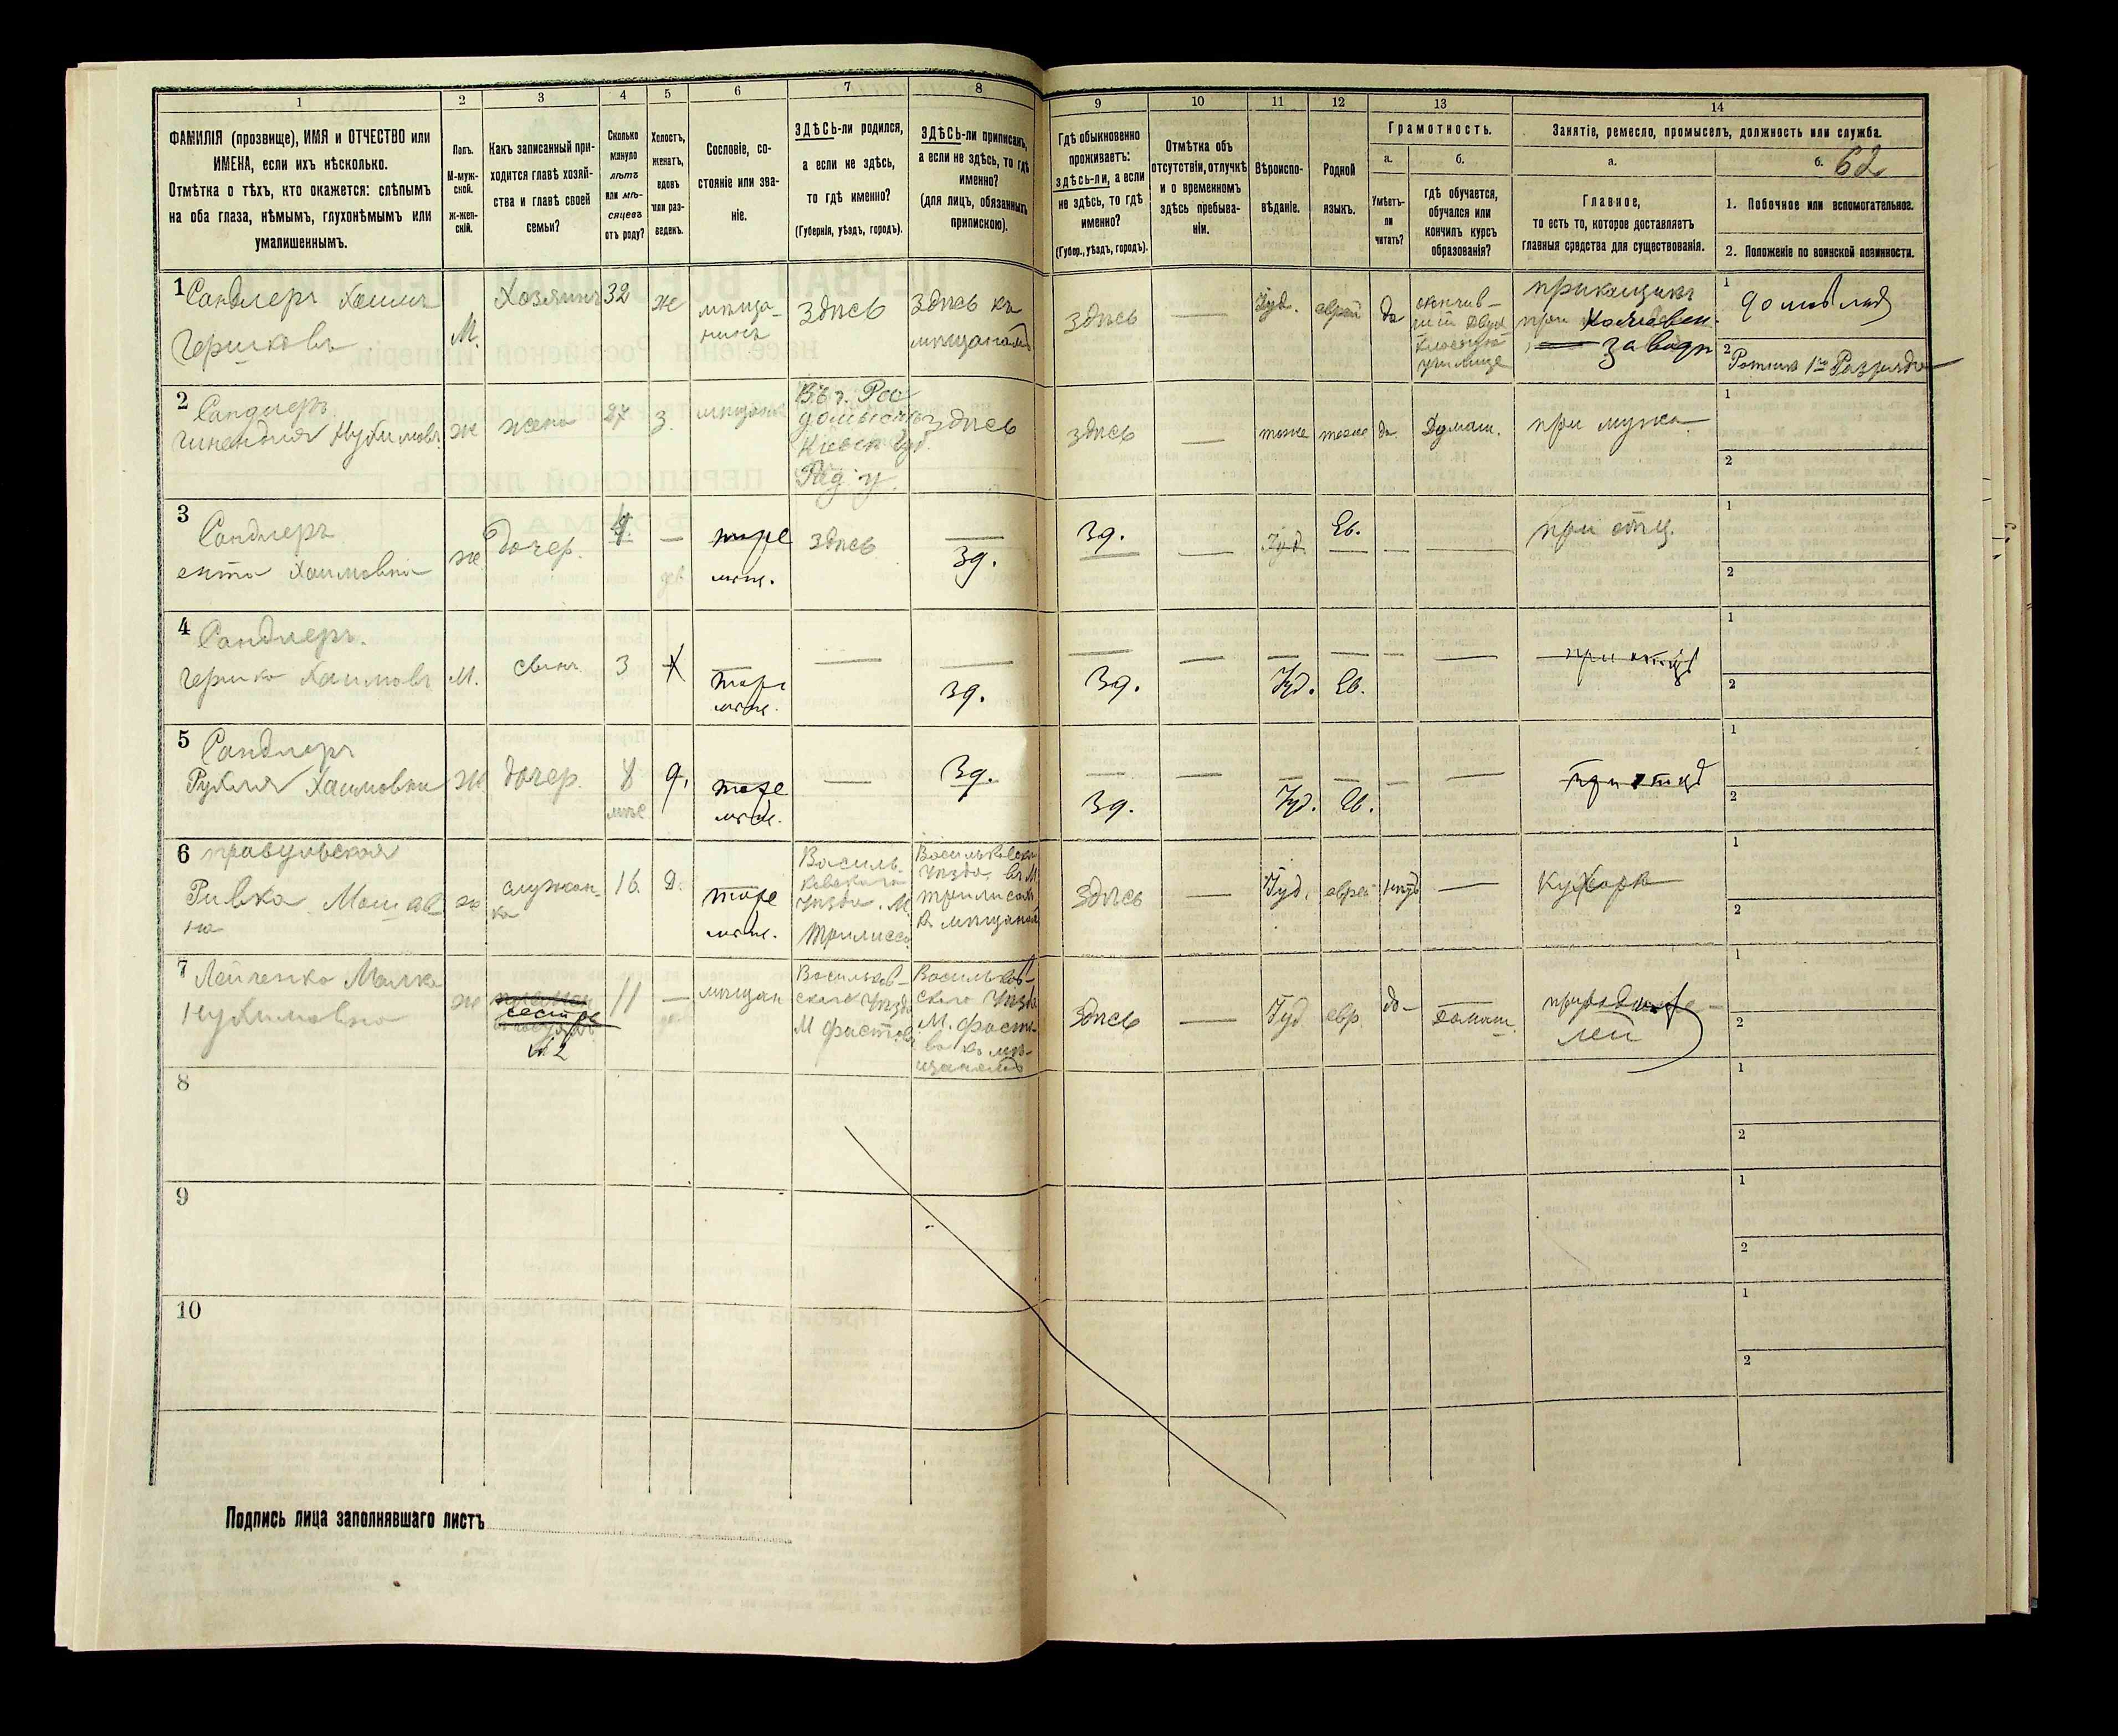 1
2
3
4
5
6
7
8
9
10
11
12
13
14
ФАМИЛІЯ (прозвище), ИМЯ и ОТЧЕСТВО или
ИМЕНА, если ихъ нѣсколько.
Отмѣтка о тѣхъ, кто окажется: слѣпымъ
на оба глаза, нѣмымъ, глухонѣмымъ или
умалишеннымъ.
Полъ.
М-муж-
ской.
ж-жен-
скій.
Какъ записанный при-
ходится главѣ хозяй-
ства и главѣ своей
семьи?
Сколько
минуло
лѣтъ
или мѣ-
сяцевъ
отъ роду?
Холостъ,
женатъ,
вдовъ
или раз-
веденъ.
Сословіе, со-
стояніе или зва-
ніе.
ЗДѢСЬ-ли родился,
а если не здѣсь,
то гдѣ именно?
(Губернія, уѣздъ, городъ).
ЗДѢСЬ-ли приписанъ,
а если не здѣсь, то гдѣ
именно?
(для лицъ, обязанныхъ
припискою).
Гдѣ обыкновенно
проживаетъ:
здѣсь-ли, а если
не здѣсь, то гдѣ
именно?
(Губер., уѣздъ, городъ).
Отмѣтка объ
отсутствіи, отлучкѣ
и о временномъ
здѣсь пребыва-
ніи.
Вѣроиспо-
вѣданіе.
Родной
языкъ.
Грамотность.
а.
б.
Умѣетъ-
ли
читать?
гдѣ обучается,
обучался или
кончилъ курсъ
образованія?
Занятіе, ремесло, промыселъ, должность или служба.
а.
б. 62
Главное,
то есть то, которое доставляетъ
главныя средства для существованія.
1. Побочное или вспомогательное.
2. Положеніе по воинской повинности.
1 Сандлеръ Хаимъ
Гершковъ
М.
Хозяинъ
32
ж
мѣща-
нинъ
здѣсь
Здѣсь къ
мѣщанамъ
здѣсь
—
Іуд.
еврей
да
окончив-
шій двух
классное
училище
прикащикъ
при
заводѣ
1
2 Ратник 1го Разряда
2 Сандлеръ
Нухимовн.
ж
жена
27
З.
мѣщанк
здѣсь
здѣсь
—
тоже
тоже
да
Домаш.
при мужѣ
1
2
3 Сандлеръ
ента Хаимовна
ж
дочер.
4.
—
тоже
мѣщ.
здѣсь
зд.
зд.
—
Іуд.
Ев.
—
—
при отц.
1
2
4 Сандлеръ.
Гершко Хаимовъ
М.
сынъ
3
Х
тоже
мѣщ.
—
зд.
зд.
—
Іуд.
Ев.
—
—
при отцѣ
1
2
5 Сандлеръ
Рухля Хаимовна
Ж
дочер.
8
мѣс
д.
тоже
мѣщ.
—
зд.
зд.
—
Іуд.
Ев.
—
—
при отцѣ
1
2
6
Ривка Мошков
на
ж
служан-
ка
16.
Д.
тоже
мѣщ.
Василь-
ковскаго
уѣзда. М
Трилиссы
Васильковск
уѣзда. въ М
къ мѣщанам
здѣсь
—
Іуд.
еврей
нѣтъ
—
Кухарк
1
2
7 Лейченко Малка
Нухимовна
ж
сестра
№2
11
—
мѣщан
Васильков-
скаго уѣзда
М Фастовъ
Васильков-
скаго уѣзда
М. Фасто
во къ мѣ-
щанамъ
здѣсь
—
Іуд
евр.
да-
Домаш.
при родите-
лей
1
2
8
1
2
9
1
2
10
1
2
Подпись лица заполнявшаго листъ